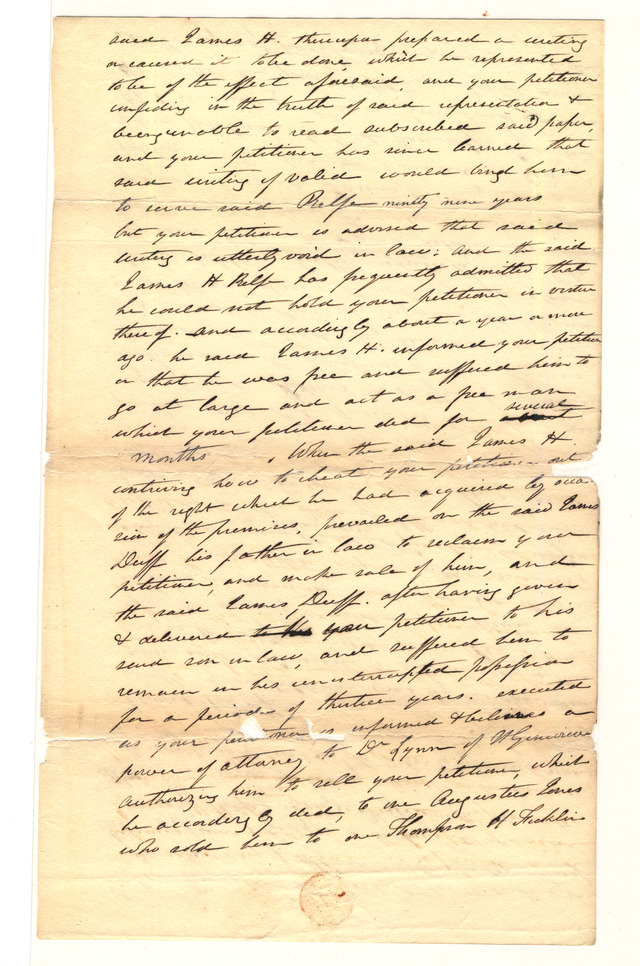 said James H. thereupon prepared a writing
or caused it to be done, which he represented
to be of the effect aforesaid, and your petitioner
confiding in the truth of said representation &
being unable to read subscribed said paper,
and your petitioner has since learned that
said writing if valid would bind him
to serve said Relfe ninety nine years
but your petitioner is advised that said
writing is utterly void in law: and the said
James H Relfe has frequently admitted that
he could not hold your petitioner in virtue
thereof. and accordingly about a year or more
ago he said James H. informed your petition
er that he was free and suffered him to
go at large and act as a free man
which your petitioner did for several
months. When the said James H.
contriving how to cheat your petitioner out
of the right which he had acquired by occa
sion of the premises, prevailed on the said James
Duff his father in law to reclaim your
petitioner, and make sale of him, and
the said James Duff. after having given
& delivered your petitioner to his
said son in law, and suffered him to
remain in his uninterrupted possession
for a periode of thirteen years. executed
as your petitioner is informed & believes a
power of attorney to Dr Lynn of St Genevieve
authorizing him to sell your petitioner, which
he accordingly did, to one Augustus Jones
who sold him to one Thompson H Ficklin